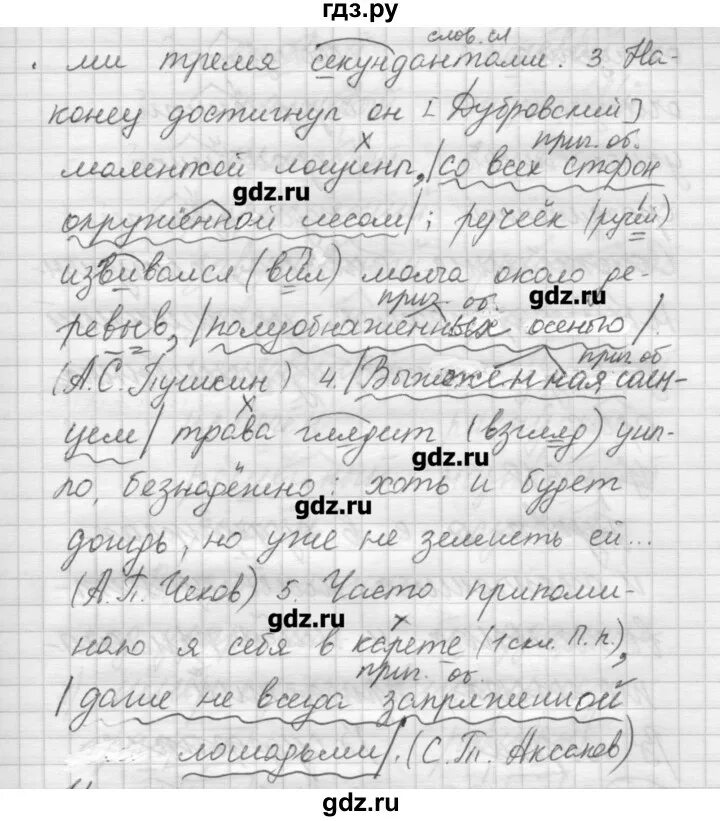 гдз.ру
слов. сл
ми тремя секундантами. 3. На-
конец достигнул он [Дубровский]
х прич. об.
маленькой лощины, |со всех сторон
gdz.ru
окружённой лесом|; ручеёк (ручей)
извивался (вил) молча около де-
прич. об. gdz.ru
ревьев, |полуобнажённых осенью|.
прич. об
(А.С. Пушкин) 4. |Выжженная солн-
х
цем| трава глядит (взгляд) уны-
gdz.ru
ло, безнадёжно: хоть и будет
gdz.ru
дождь, но уже не зеленеть ей...
(А.П. Чехов) 5. Часто припоми-
gdz.ru х
наю я себя в карете (1 скл. П.п.),
прич. об.
|даже не всегда запряженной
лошадьми|. (С.Т. Аксаков)
gdz.ru